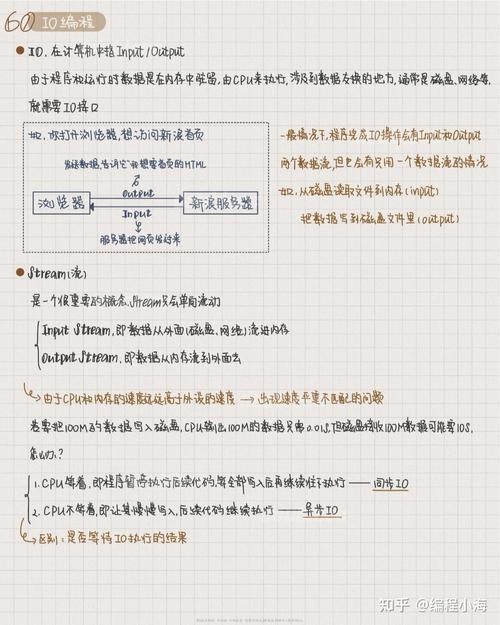 60 IO编程
IO, 在计算机中指Input/Output
由于程序和运行时数据是在内存中驻留,由CPU来执行,涉及到数据交换的地方,通常是磁盘、网络等,
就需要IO接口
如. 你打开浏览器,想访问新浪首页
发送数据,告诉它我想要首页的HTML
Output
浏览器
新浪服务器
Input
服务器把网页发过来
一般情况下,程序完成IO操作会有Input和Output
两个数据流,但也会有只用一个数据流的情况
如. 从磁盘读取文件到内存(input)
把数据写到磁盘文件里(output)
Stream(流)
是一个很重要的概念,Stream只会单向流动
Input Stream,即数据从外面(磁盘、网络)流进内存
Output Stream,即数据从内存流到外面去
由于CPU和内存的速度远远高于外设的速度 → 出现速度严重不匹配的问题
若要把100M的数据写入磁盘,CPU输出100M的数据只需0.01s,但磁盘接收100M数据可能需10s,
怎么办?
1. CPU等着,即程序暂停执行后续代码,等全部写入后再继续往下执行 —— 同步IO
2. CPU不等着,即让其慢慢写入,后续代码继续执行 —— 异步IO
区别:是否等待IO执行的结果
知乎 @编程小海